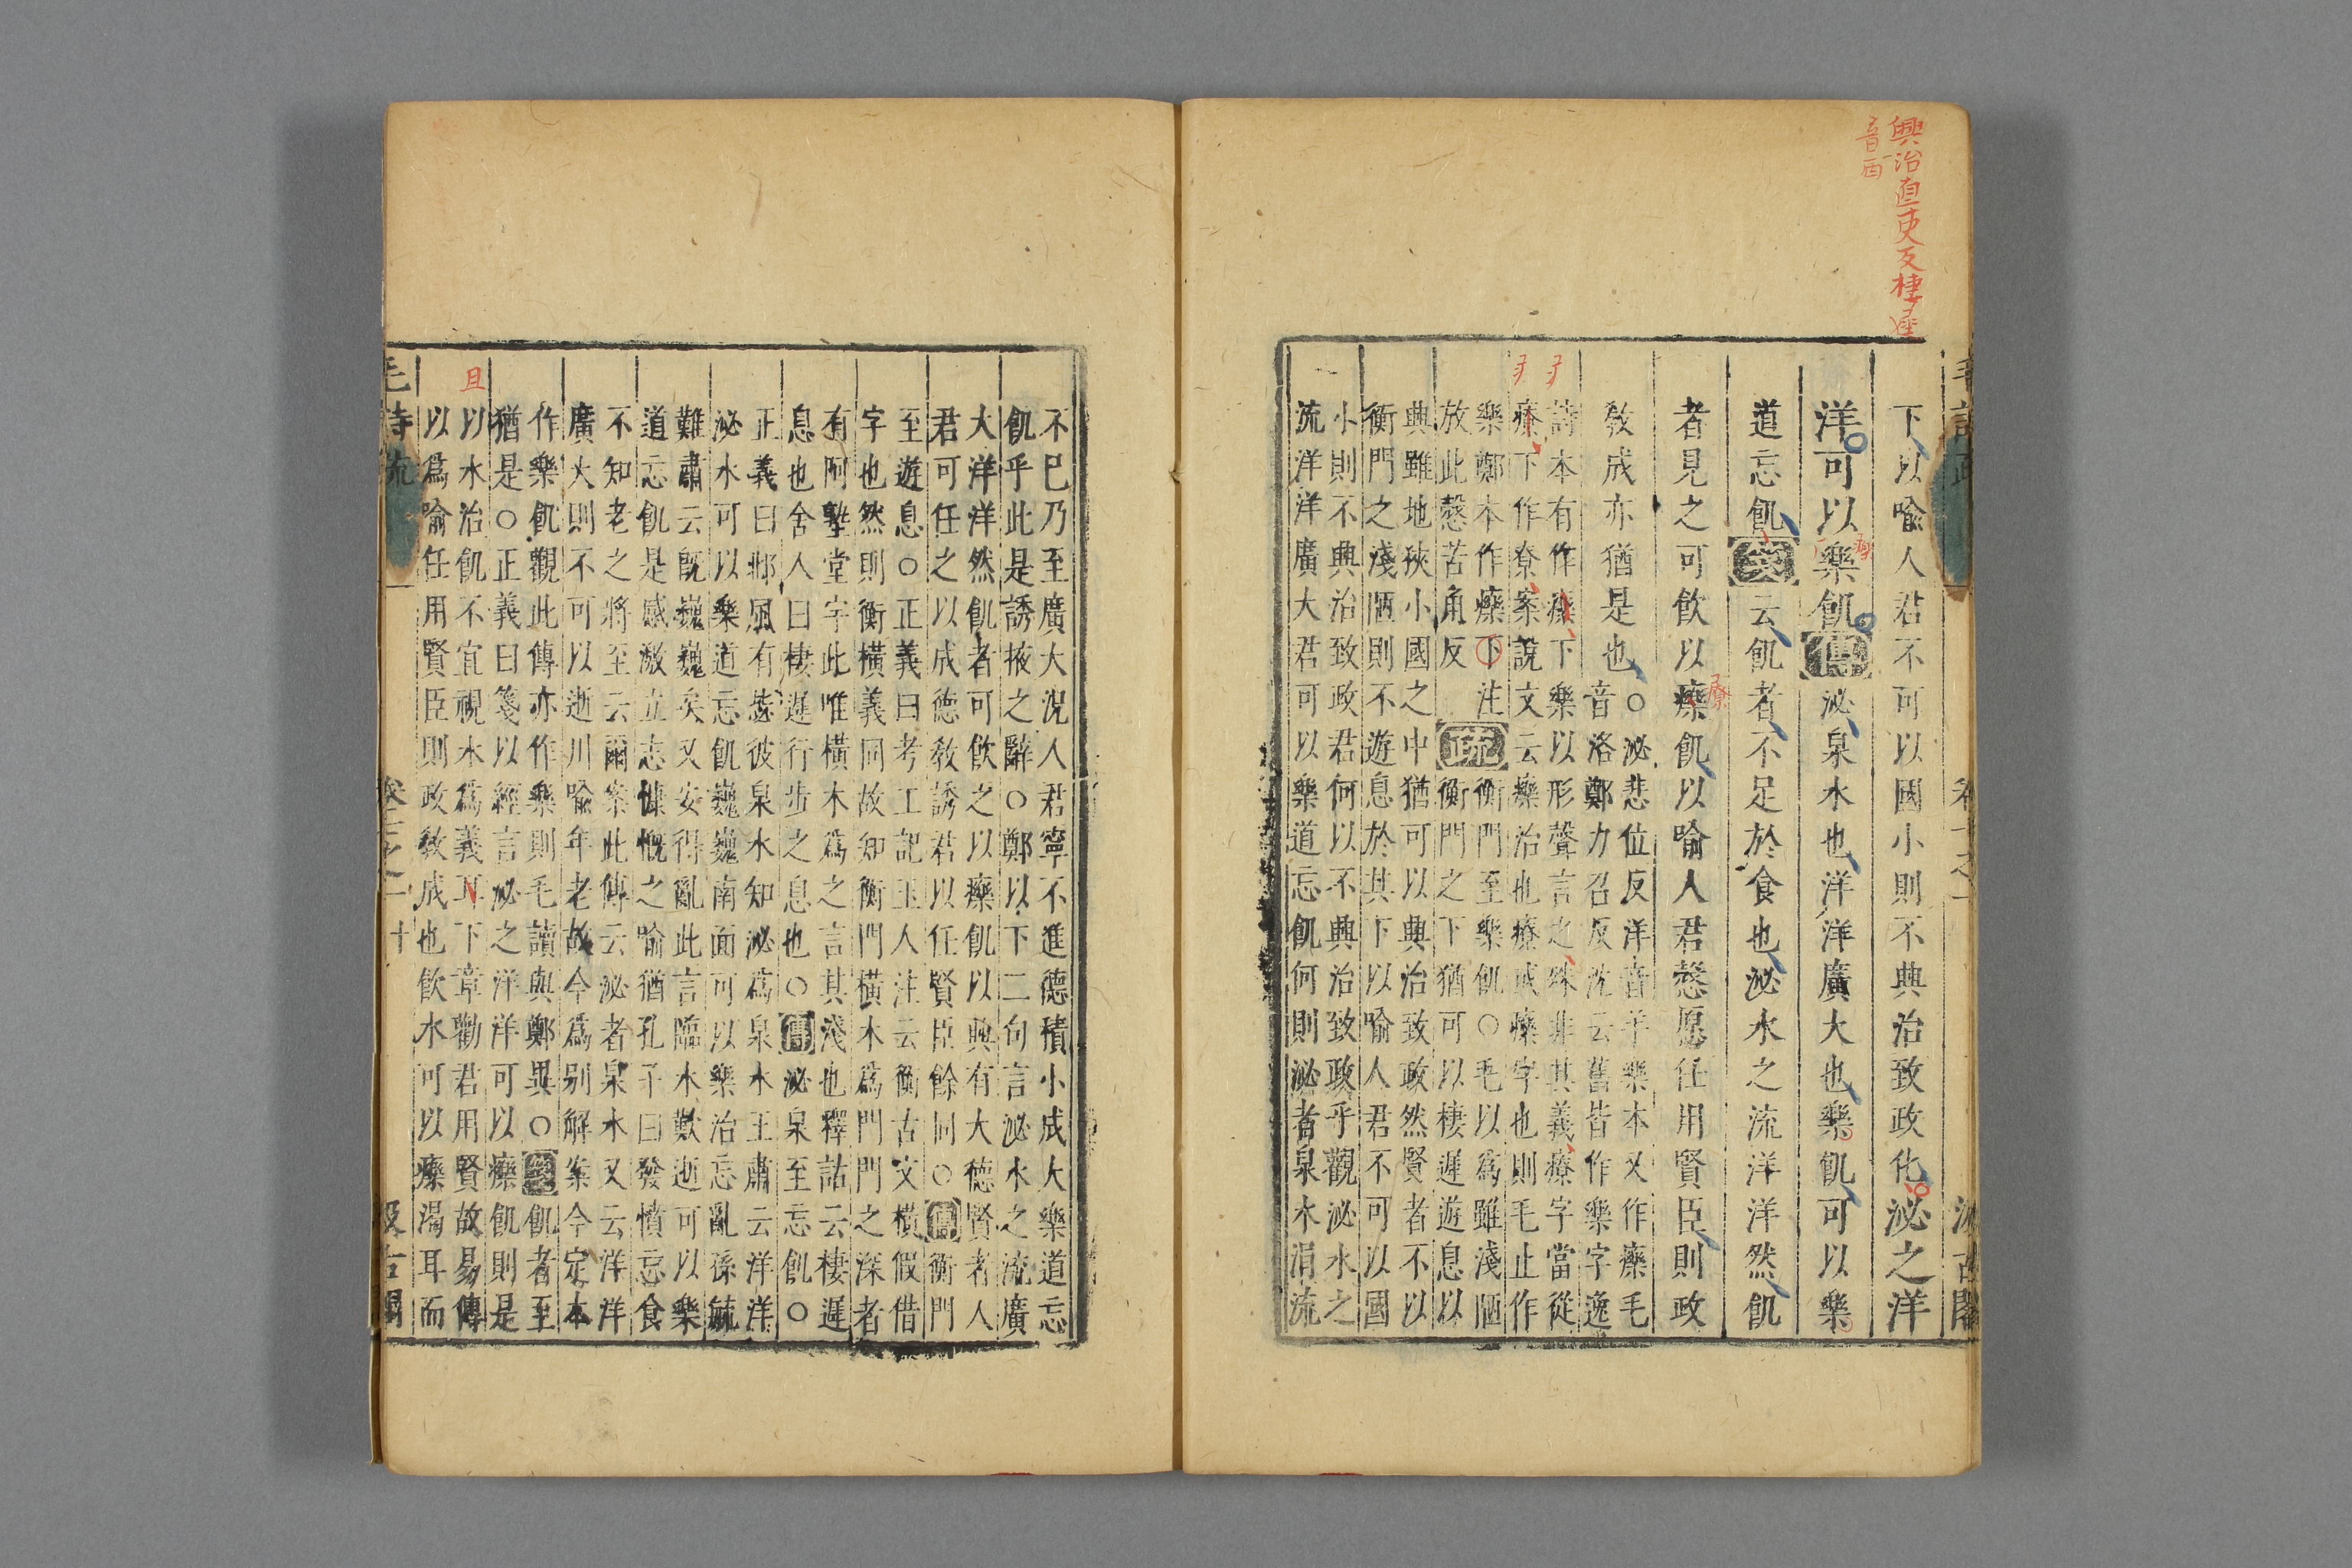 興治直吏反棲
音西
下以喻人君不可以國小則不興治致政化泌之洋
洋可以樂飢傳泌泉水也洋洋廣大也樂飢可以樂
道忘飢箋云飢者不足於食也泌水之流洋洋然飢
者見之可飲以㿉飢以喻人君慤愿任用賢臣則政
教成亦猶是也
○泌悲位反洋音羊樂本又作㿉毛
音洛鄭力召反沈云舊皆作樂字逸
詩本有作㿉下樂以形聲言之殊非其義療字當從
疒下作尞案說文云㿉治也療或㿉字也則毛止作
樂鄭本作㿉下注
放此慤苦角反
疏
衡門至樂飢○毛以爲雖淺陋
衡門之下猶可以棲遲遊息以
興雖地狹小國之中猶可以興治致政然賢者不以
衡門之淺陋則不遊息於其下以喻人君不可以國
小則不興治致政君何以不興治致政乎觀泌水之
流洋洋廣大君可以樂道忘飢何則泌者泉水涓流
不已乃至廣大況人君寧不進德積小成大樂道忘
飢乎此是誘掖之辭○鄭以下二句言泌水之流廣
大洋洋然飢者可飲之以㿉飢以興有大德賢者人
君可任之以成德教誘君以任賢臣餘同○傳衡門
至遊息○正義曰考工記玉人注云衡古文橫假借
字也然則衡橫義同故知衡門橫木爲門門之深者
有阿塾堂宇此唯橫木爲之言其淺也釋詁云棲遲
息也舍人曰棲遲行步之息也○傳泌泉至忘飢○
正義曰邶風有毖彼泉水知泌爲泉水王肅云洋洋
泌水可以樂道忘飢巍巍南面可以樂治忘亂孫毓
難肅云既巍巍矣又安得亂此言臨水歎逝可以樂
道忘飢是感激立志慷慨之喻猶孔子曰發憤忘食
不知老之將至云爾案此傳云泌者泉水又云洋洋
廣大則不可以逝川喻年老故今爲別解案今定本
作樂飢觀此傳亦作樂則毛讀與鄭異○箋飢者至
猶是○正義曰箋以經言泌之洋洋可以㿉飢則是
且
以水治飢不宜視水爲義耳下章勸君用賢故易傳
以爲喻任用賢臣則政教成也飲水可以㿉渴耳而